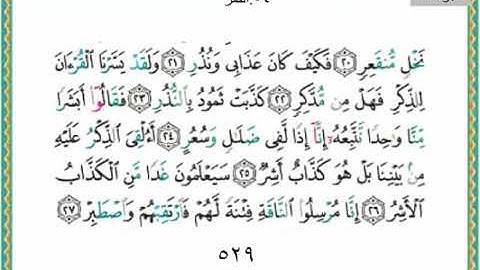 نَخْلٍ مُّنقَعِرٍ ﴿٢٠﴾ فَكَيْفَ كَانَ عَذَابِى وَنُذُرِ ﴿٢١﴾ وَلَقَدْ يَسَّرْنَا الْقُرْءَانَ
لِلذِّكْرِ فَهَلْ مِن مُّدَّكِرٍ ﴿٢٢﴾ كَذَّبَتْ ثَمُودُ بِالنُّذُرِ ﴿٢٣﴾ فَقَالُوٓا۟ أَبَشَرًا
مِّنَّا وَٰحِدًا نَّتَّبِعُهُۥٓ إِنَّآ إِذًا لَّفِى ضَلَٰلٍ وَسُعُرٍ ﴿٢٤﴾ أَءُلْقِىَ الذِّكْرُ عَلَيْهِ
مِنۢ بَيْنِنَا بَلْ هُوَ كَذَّابٌ أَشِرٌ ﴿٢٥﴾ سَيَعْلَمُونَ غَدًا مَّنِ الْكَذَّابُ
الْأَشِرُ ﴿٢٦﴾ إِنَّا مُرْسِلُوا۟ النَّاقَةِ فِتْنَةً لَّهُمْ فَارْتَقِبْهُمْ وَاصْطَبِرْ ﴿٢٧﴾
٥٢٩